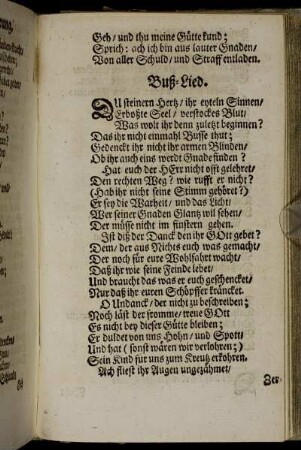 Geh/ und thu meine Gütte kund;
Sprich: ach ich bin aus lauter Gnaden/
Von aller Schuld/ und Straff entladen.
Buß-Lied.
DU steinern Hertz/ ihr eyteln Sinnen/
Erboßte Seel/ verstocktes Blut/
Was wolt ihr denn zuletzt beginnen?
Das ihr nicht einmahl Busse thut;
Gedenckt ihr nicht ihr armen Blinden/
Ob ihr auch eins werdt Gnade finden?
Hat euch der HErr nicht offt gelehret/
Den rechten Weg? wie rufft er nicht?
(Hab ihr nicht seine Stimm gehöret?)
Er sey die Warheit/ und das Licht/
Wer seiner Gnaden Glantz wil sehen/
Der müsse nicht im finstern gehen.
Ist diß der Danck den ihr GOtt gebet?
Dem/ der aus Nichts euch was gemacht/
Der noch für eure Wohlfahrt wacht/
Daß ihr wie seine Feinde lebet/
Und braucht das was er euch geschencket/
Nur daß ihr euren Schöpffer kräncket.
O Undanck/ der nicht zu beschreiben;
Noch läst der fromme/ treue GOtt
Es nicht bey dieser Gütte bleiben;
Er duldet von uns Hohn/ und Spott/
Und hat (sonst wären wir verlohren;)
Sein Kind für uns zum Kreutz erkohren.
Ach fliest ihr Augen ungezähmet/
Zer-